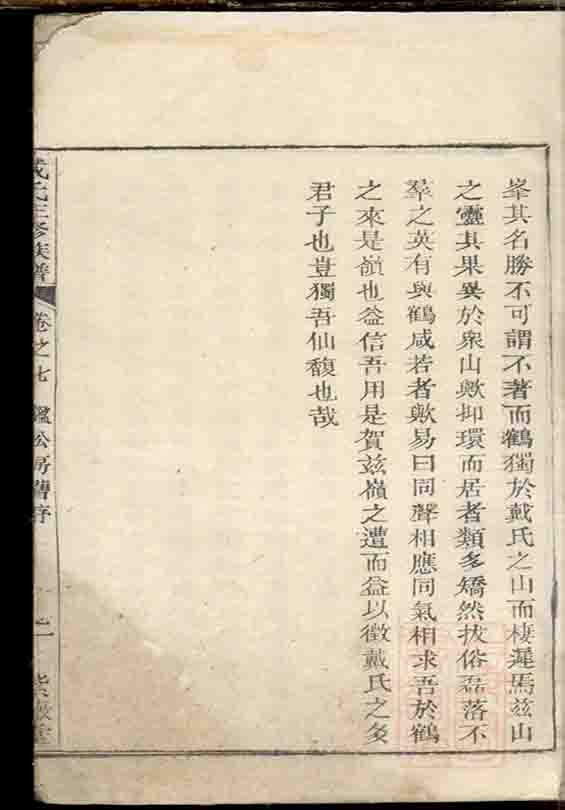 峯其名勝不可謂不著而鶴獨於戴氏之山而棲遲焉茲山
之靈其果異於衆山歟抑環而居者類多矯然拔俗磊落不
羣之英有與鶴咸若者歟易曰同聲相應同氣相求吾於鶴
之來是嶺也益信吾用是賀茲嶺之遭而益以徵戴氏之多
君子也豈獨吾仙馥也哉
戴氏三修族譜 卷之七 鑑公房舊序